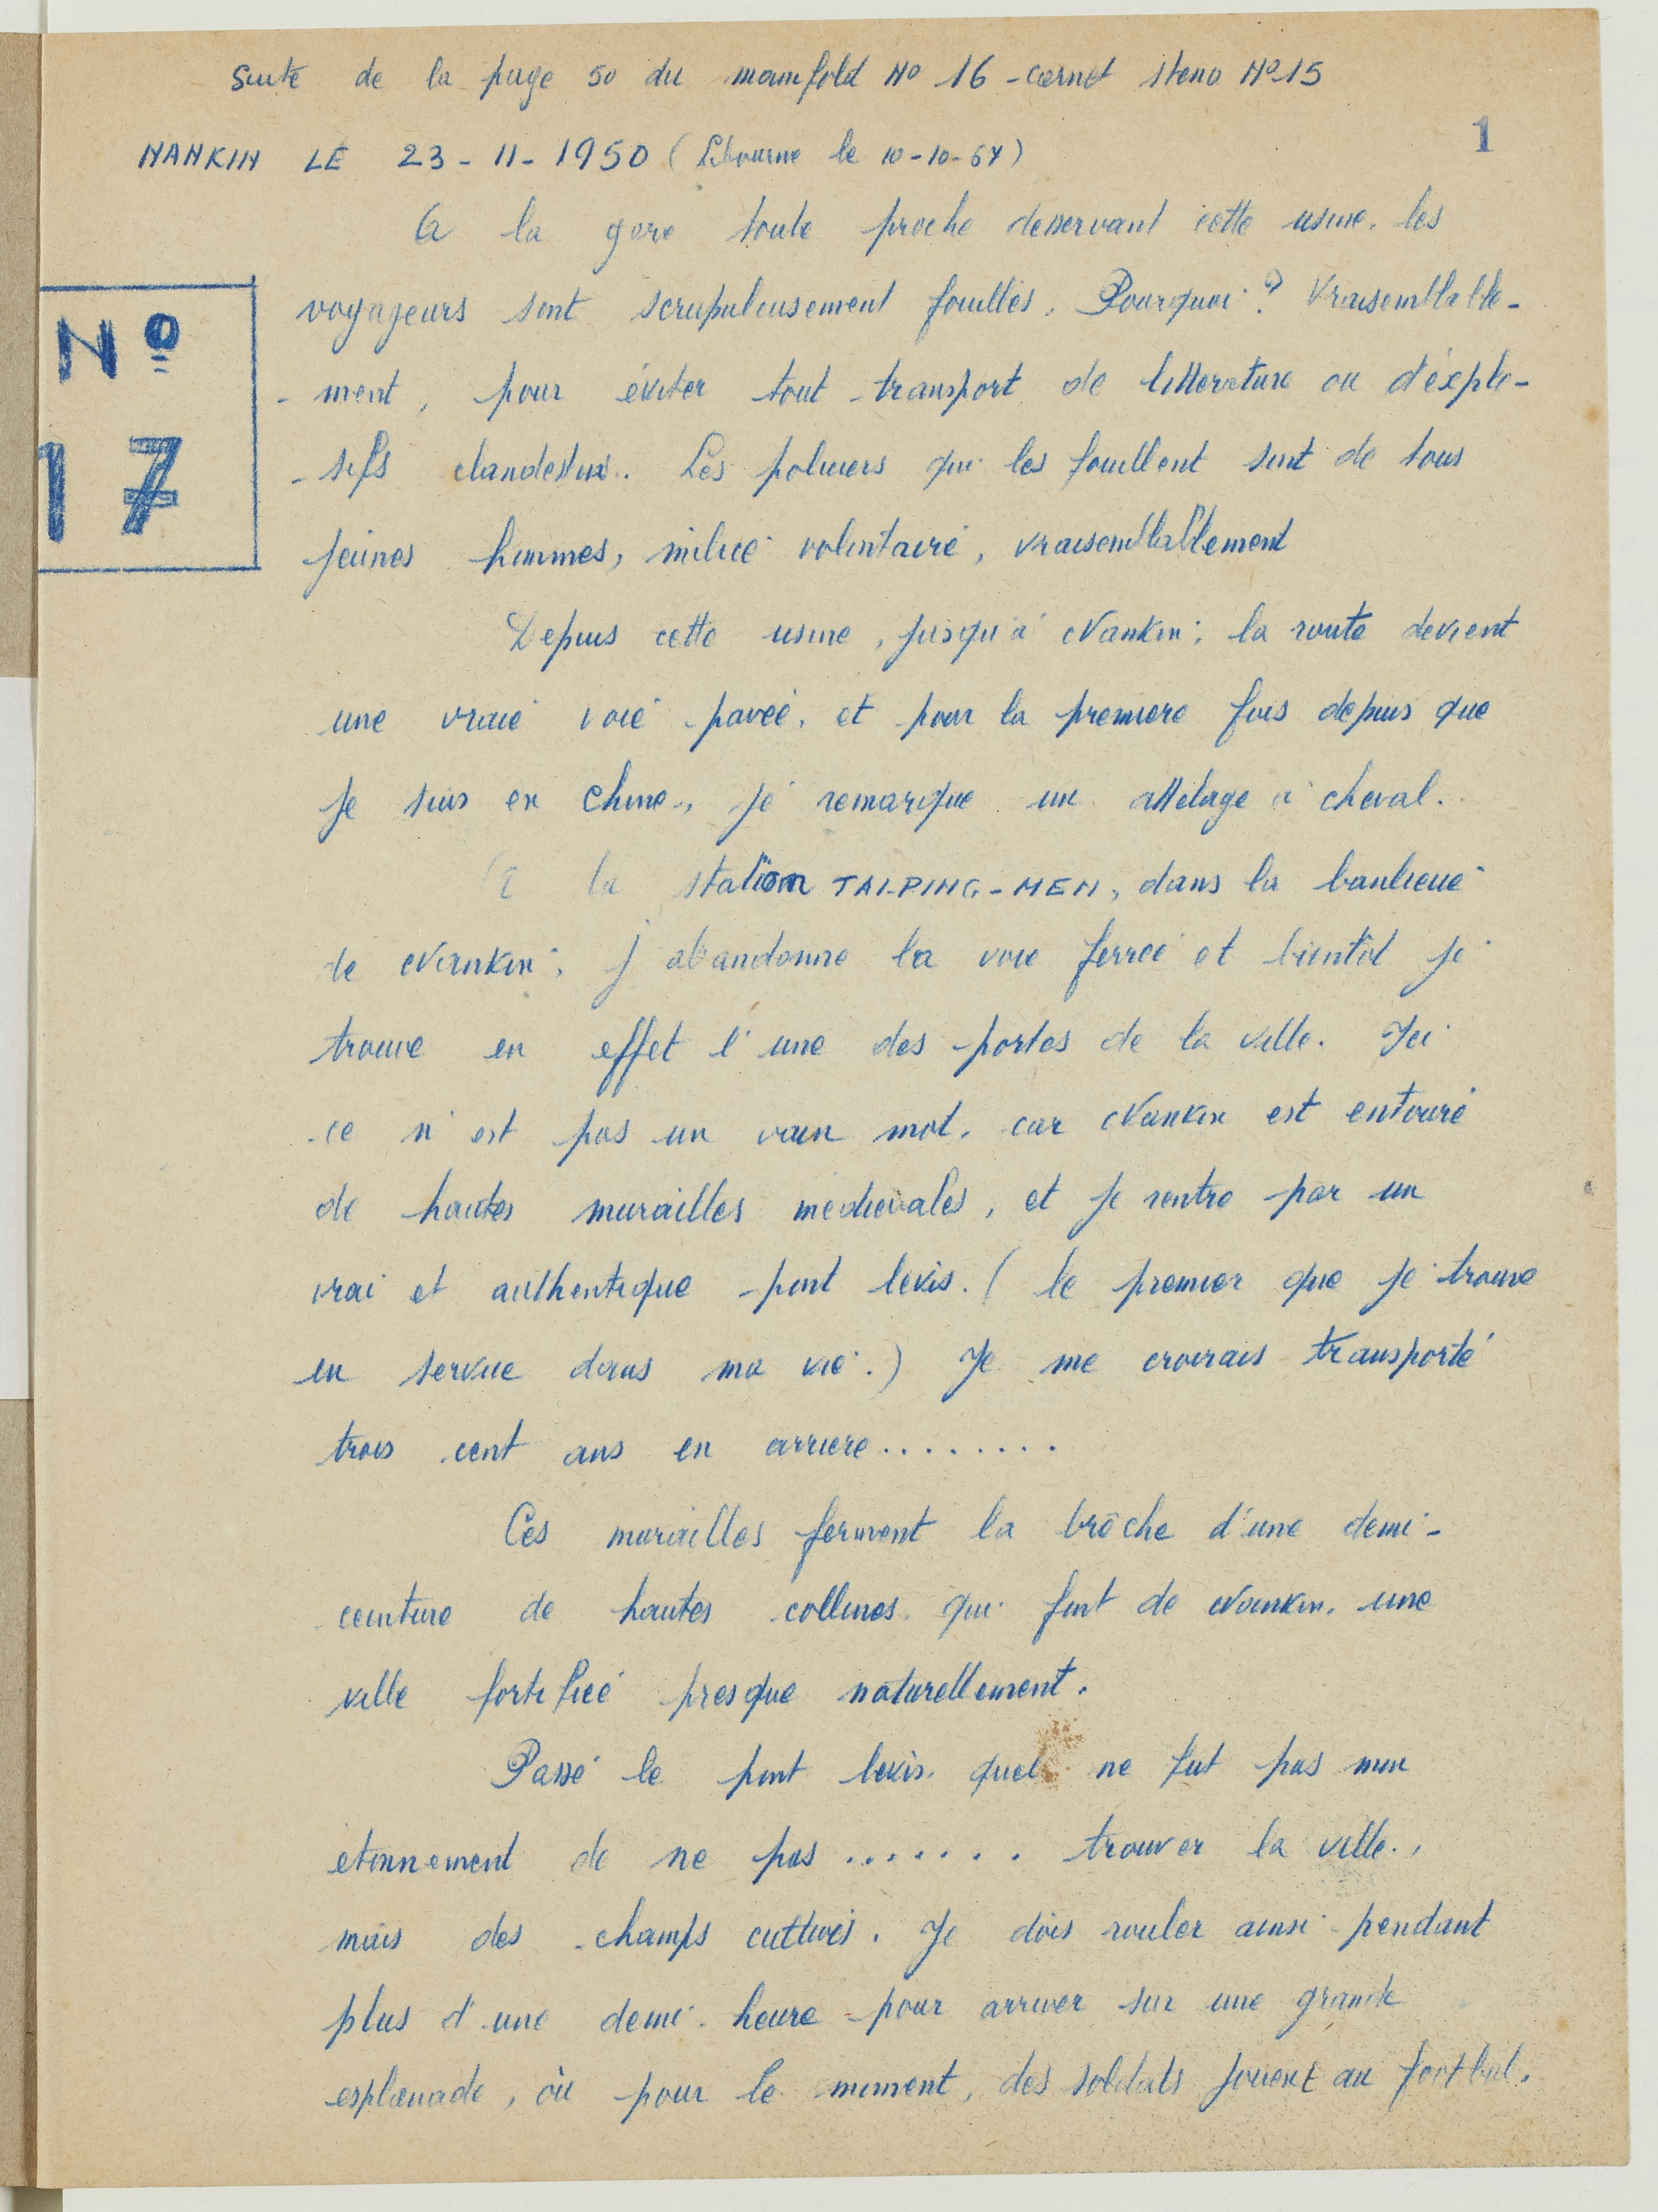 Suite de la page 50 du manifold No 16 - carnet steno No 15
1
NANKIN LE 23-11-1950 (Libourne le 10-10-64)
A la gare toute proche desservant cette usine, les
No
17
voyageurs sont scrupuleusement fouillés. Pourquoi? Vraisemblable-
- ment, pour éviter tout transport de litterature ou d'explo-
- sifs clandestins. Les policiers qui les fouillent sont de tous
jeunes hommes, milice volontaire, vraisemblablement
Depuis cette usine, jusqu'à Nankin, la route devient
une vraie voie pavée, et pour la premiere fois depuis que
je suis en Chine, je remarque un attelage à cheval.
A la station TAI-PING-MEN, dans la banlieue
de Nankin, j'abandonne la voie ferrée et bientôt je
trouve en effet l'une des portes de la ville. Ici
ce n'est pas un vain mot, car Nankin est entouré
de hautes murailles medievales, et je rentre par un
vrai et authentique pont levis. (le premier que je trouve
en service dans ma vie.) Je me croirais transporté
trois cent ans en arriere........
Ces murailles ferment la brêche d'une demi-
ceinture de hautes collines qui font de Nankin, une
ville fortifiée presque naturellement.
Passé le pont levis, quel ne fut pas mon
etonnement de ne pas ....... trouver la ville,
mais des champs cultivés. Je dois rouler ainsi pendant
plus d'une demi-heure pour arriver sur une grande
esplanade, où pour le moment, des soldats jouent au football.